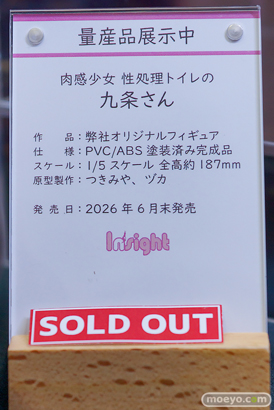 量産品展示中
肉感少女 性処理トイレの
九条さん
作　品：弊社オリジナルフィギュア
仕　様：PVC/ABS 塗装済み完成品
スケール：1/5スケール 全高約187mm
原型製作：つきみや、ヅカ
発 売 日：2026年6月末発売
Insight
SOLD OUT
moeyo.com